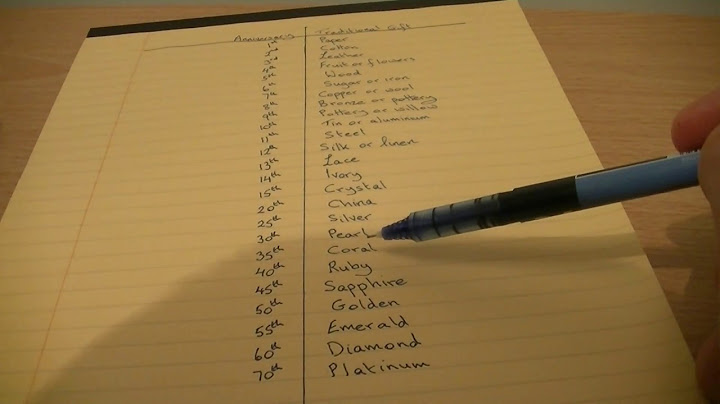 Anniversary Traditional Gift
1st Paper
2nd Cotton
3rd Leather
4th Fruit or flowers
5th Wood
6th Sugar or iron
7th Copper or wool
8th Bronze or pottery
9th Pottery or willow
10th Tin or aluminum
11th Steel
12th Silk or linen
13th Lace
14th Ivory
15th Crystal
20th China
25th Silver
30th Pearl
35th Coral
40th Ruby
45th Sapphire
50th Golden
55th Emerald
60th Diamond
70th Platinum